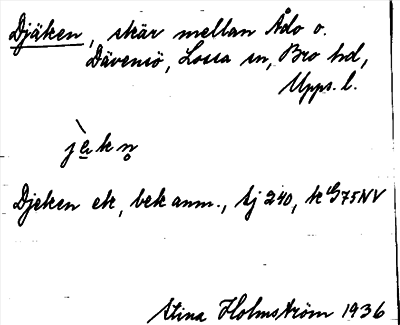 Djäken, skär mellan Ådo o.
Dävensö, Lossa sn, Bro hd,
Upps. l.
jèkn̥
Djeken ek, bek anm., sj 240, k G75NV
Stina Holmström 1936